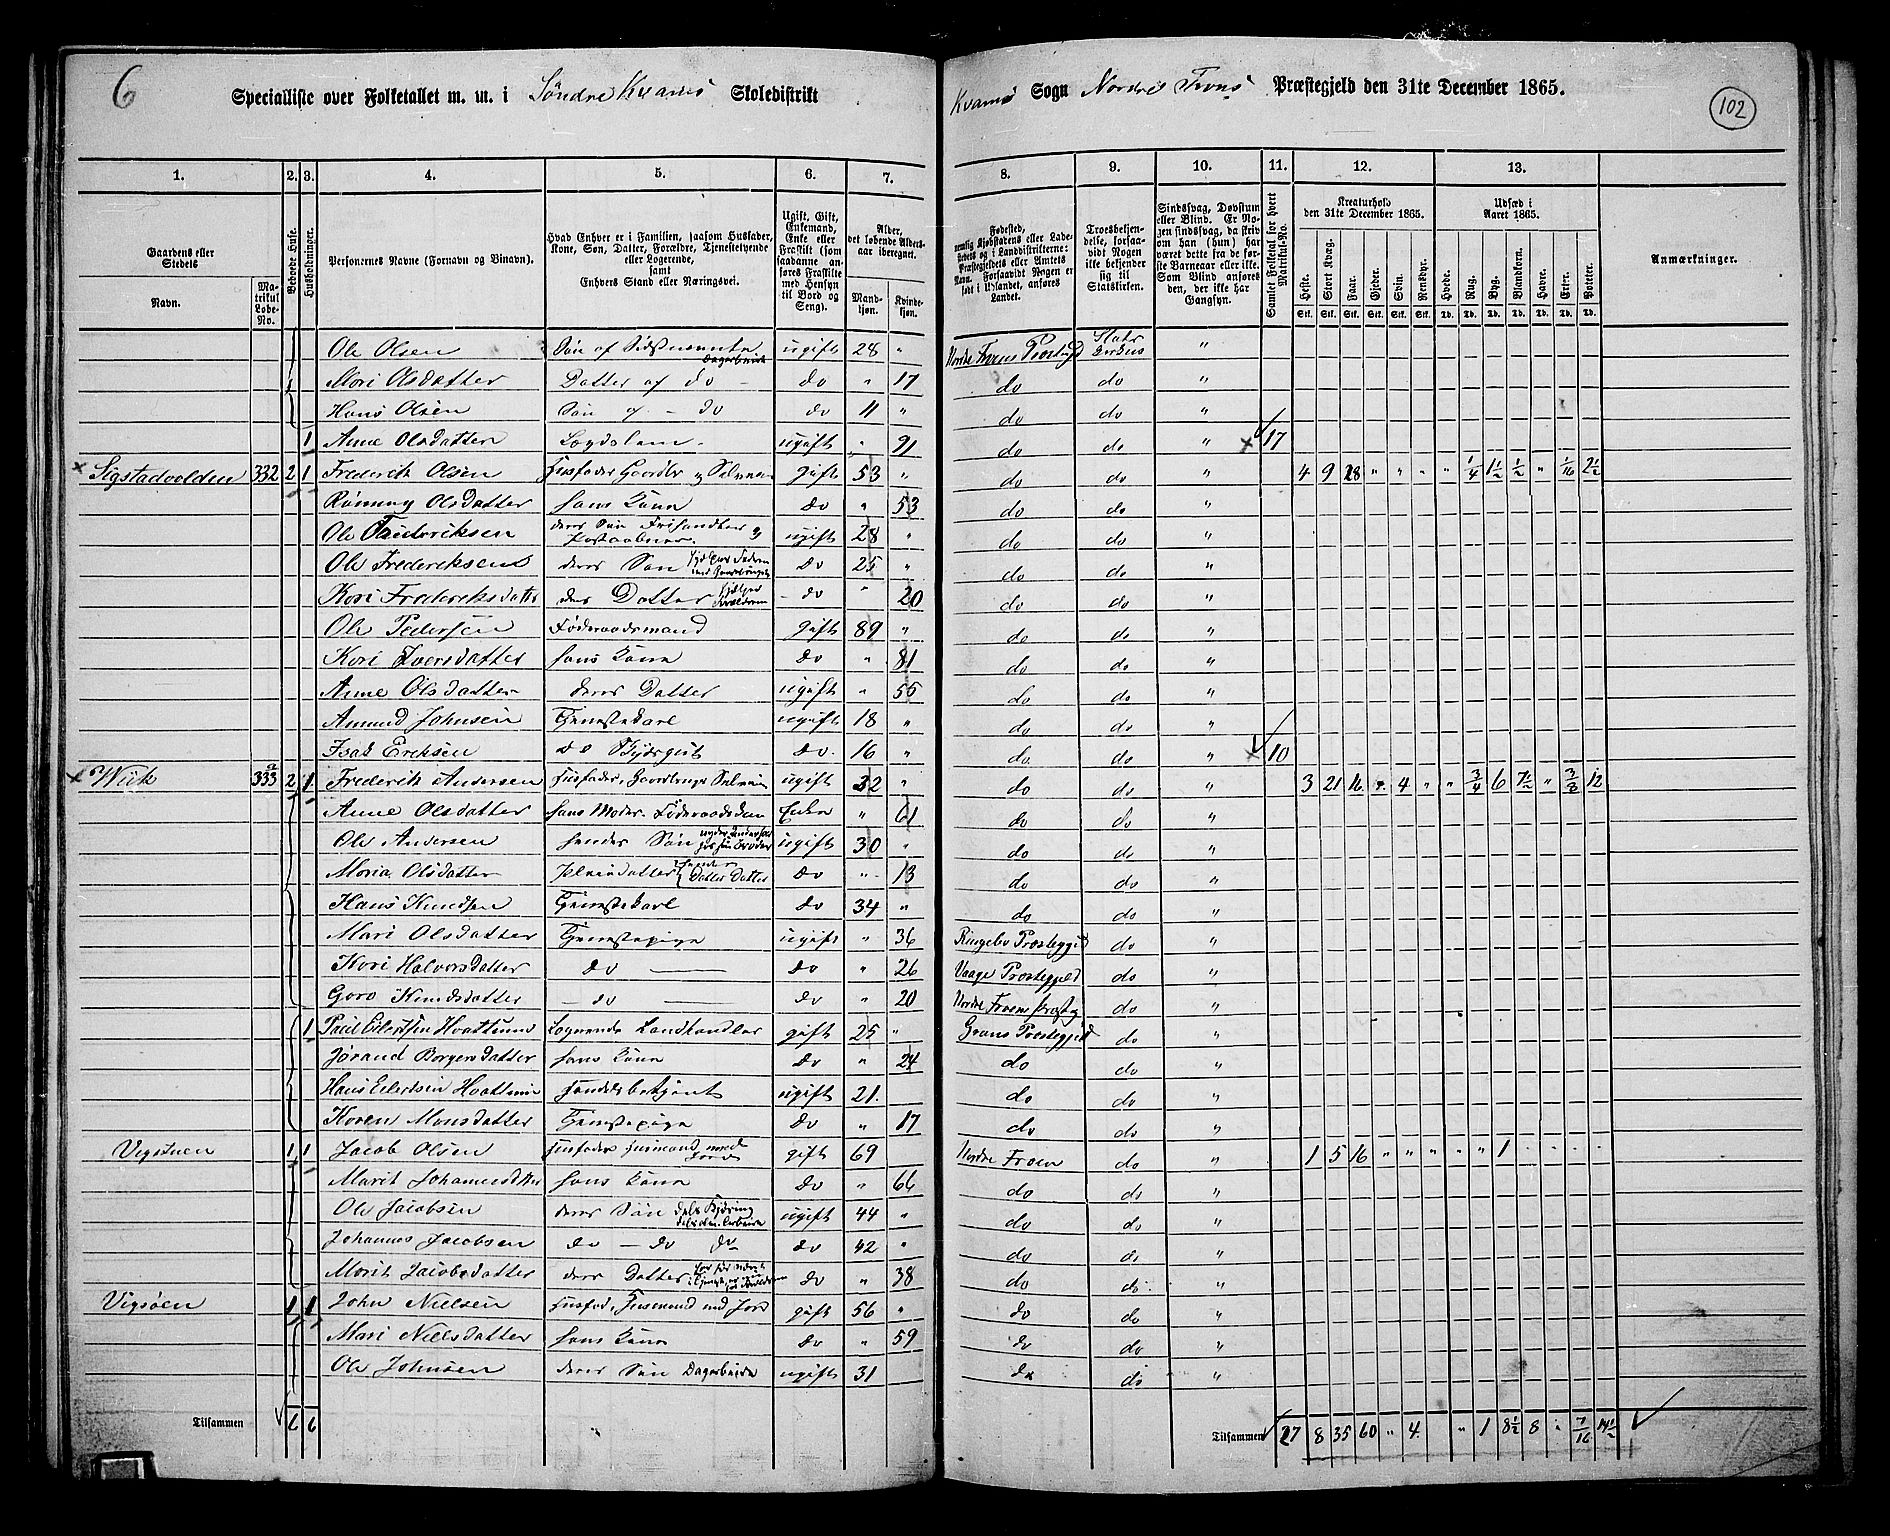 6
Specialliste over Folketallet m. m. i Søndre Kvams Skoledistrikt
Kvams Sogn Nordre Frons Præstegjeld den 31te December 1865.
102
1. 2. 3. 4. 5. 6. 7. 8. 9. 10. 11. 12. 13.
Gaardens eller Stedets
Navn.
Matrikul Løbe-No.
Beboede Huse.
Husholdninger.
Personernes Navne (Fornavn og Binavn).
Hvad Enhver er i Familien, saasom Husfader, Kone, Søn, Datter, Forældre, Tjenestetyende eller Logerende, samt Enhvers Stand eller Næringsvei.
Ugift, Gift, Enkemand, Enke eller Fraskilt (som saadanne anføres Fraskilte med Hensyn til Bord og Seng).
Alder, det løbende Aldersaar iberegnet.
Mandkjøn. Kvindekjøn.
Fødested, nemlig Kjøbstadens eller Ladestedets og i Landdistrikterne: Præstegjeldets eller Amtets Navn. Forsaavidt Nogen er født i Udlandet, anføres Landet.
Troesbekjendelse, forsaavidt Nogen ikke bekjender sig til Statskirken.
Sindssvag, Døvstum eller Blind. Er Nogen sindssvag, da skriv om han (hun) har været dette fra de første Barneaar eller ikke. Som Blind anføres den, der ikke har Gangsyn.
Samlet Folketal for hvert Matrikul-No.
Kreaturhold den 31te December 1865.
Heste. Stort Kvæg. Faar. Gjeder. Svin. Rensdyr.
Udsæd i Aaret 1865.
Hvede. Rug. Byg. Blandkorn. Havre. Erter. Poteter.
Anmærkninger.
Ole Olsen Søn af ugift 28 " Nordre Frons Præstegjd Stats Kirkens "
Mari Olsdatter Datter af do do " 17 do do "
Hans Olsen Søn af do do 11 " do do "
1 Anne Olsdatter Lægdslem ugift " 91 do do " 17
Sigstadvolden 332 2 1 Frederik Olsen Husfader Gaardbr og Selveier gift 53 " do do " 4 9 28 " " " " 1/4 1 1/2 1/2 " 1/16 2 1/2
Rønnoug Olsdatter hans Kone do " 53 do do "
Ole Frederiksen deres Søn ugift 28 " do do "
Ole Frederiksen deres Søn do 25 " do do "
Kari Frederiksdatter deres Datter do " 20 do do "
Ole Pedersen Føderaadsmand gift 89 " do do "
Kari Iversdatter hans Kone do " 81 do do "
Anne Olsdatter deres Datter ugift " 55 do do "
Amund Johnsen Tjenestekarl ugift 18 " do do "
Isak Eriksen do do 16 " do do " 10
Wiik 333 a 2 1 Frederik Andersen Husfader, Gaardbruger Selveier ugift 32 " do do " 3 21 16 " 4 " " 3/4 6 7 1/2 " 3/8 12
Anne Olsdatter hans Moder Enke " 61 do do "
Ole Andersen hendes Søn ugift 30 " do do "
Maria Olsdatter Pleiedatter Datter Datter do " 13 do do "
Hans Knudsen Tjenestekarl do 34 " do do "
Mari Olsdatter Tjenestepige ugift " 36 Ringebo Præstegjd do "
Kari Halvorsdatter do do " 26 Vaage Præstegjeld do "
Goro Knudsdatter do do " 20 Nordre Frons Præstg do "
1 Paul Eilertsen Hvattum Logerende Landhandler gift 25 " Grans Præstegjeld do "
Jørand Borgersdatter hans Kone do " 24 do do "
Hans Eilertsen Hvattum Handelsbetjent ugift 21 do do "
Karen Monsdatter Tjenestepige do " 17 do do "
Vigstuen 1 1 Jacob Olsen Husfader Husmand med Jord gift 69 Nordre Fron do " 1 5 16 " " " " " 1
Marit Johannesdtter hans Kone do " 66 do do "
Ole Jacobsen deres Søn ugift 44 " do do "
Johannes Jacobsen do do do do 42 " do do "
Marit Jacobsdatter deres Datter do " 38 do do "
Vigsøen 1 1 John Nielsen Husfad, Husmand med Jord gift 56 " do do "
Mari Nielsdatter hans Kone do " 59 do do "
Ole Johnsen deres Søn Dagarbeide ugift 31 do do "
Tilsammen 6 6
Tilsammen 27 8 35 60 " 4. " 1 8 1/2 8 " 7/16 14 1/2